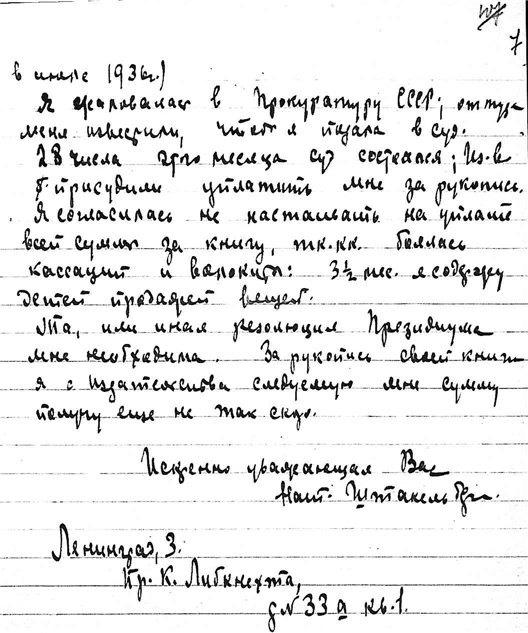 7
в июле 1936г.)
Я жаловалась в Прокуратуру СССР; оттуда
меня известили, чтоб я подала в суд.
28 числа этого месяца суд состоялся; Из-в
присудили уплатить мне за рукопись.
Я согласилась не настаивать на уплате
всей суммы за книгу, т.к. боялась
кассации и волокиты: 3½ мес. я содержу
детей продажей вещей.
Та, или иная резолюция Президиума
мне необходима. За рукопись своей книги
я с издательства следуемую мне сумму
получу еще не так скоро.
Искренно уважающая Вас
Нат. Штакельберг.
Ленинград, 3.
Пр. К. Либкнехта,
д № 33 а кв. 1.